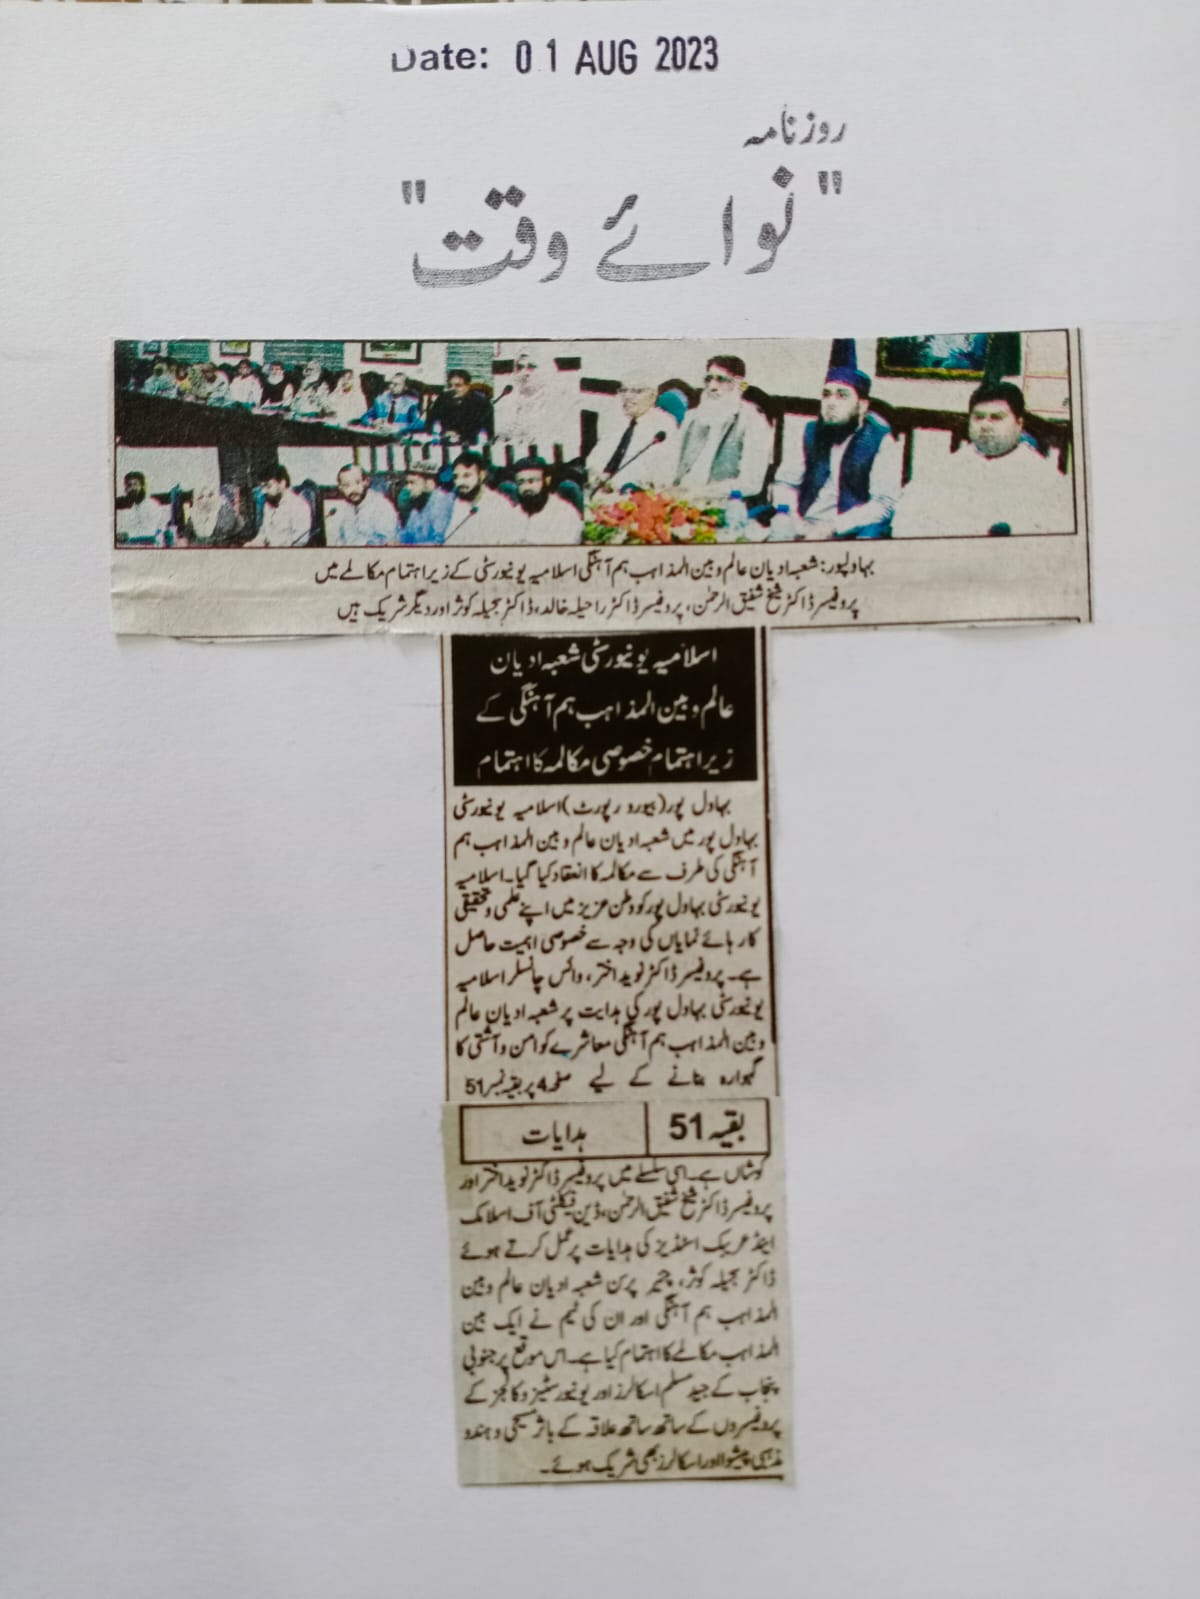 Date: 01 AUG 2023
روزنامہ
"نوائے وقت"
بہاولپور: شعبہ ادیان عالم و بین المذاہب ہم آہنگی اسلامیہ یونیورسٹی کے زیر اہتمام مکالمے میں
پروفیسر ڈاکٹر شیخ شفیق الرحمٰن، پروفیسر ڈاکٹر راحیلہ خالد، ڈاکٹر جمیلہ کوثر اور دیگر شریک ہیں
اسلامیہ یونیورسٹی شعبہ ادیان
عالم و بین المذاہب ہم آہنگی کے
زیر اہتمام خصوصی مکالمہ کا اہتمام
بہاول پور (بیورو رپورٹ) اسلامیہ یونیورسٹی
بہاول پور میں شعبہ ادیان عالم و بین المذاہب ہم
آہنگی کی طرف سے مکالمہ کا انعقاد کیا گیا۔ اسلامیہ
یونیورسٹی بہاول پور کو وطن عزیز میں اپنے علمی و تحقیقی
کارہائے نمایاں کی وجہ سے خصوصی اہمیت حاصل
ہے۔ پروفیسر ڈاکٹر نوید اختر، وائس چانسلر اسلامیہ
یونیورسٹی بہاول پور کی ہدایت پر شعبہ ادیان عالم
و بین المذاہب ہم آہنگی معاشرے کو امن و آشتی کا
گہوارہ بنانے کے لیے صفحہ 4 پر بقیہ نمبر 51
بقیہ 51 ہدایات
کوشاں ہے۔ اسی سلسلے میں پروفیسر ڈاکٹر نوید اختر اور
پروفیسر ڈاکٹر شیخ شفیق الرحمٰن، ڈین فیکلٹی آف اسلامک
اینڈ عریبک اسٹڈیز کی ہدایات پر عمل کرتے ہوئے
ڈاکٹر جمیلہ کوثر، چیئر پرسن شعبہ ادیان عالم و بین
المذاہب ہم آہنگی اور ان کی ٹیم نے ایک بین
المذاہب مکالمے کا اہتمام کیا ہے۔ اس موقع پر جنوبی
پنجاب کے جید مسلم اسکالرز اور یونیورسٹیز و کالجز کے
پروفیسروں کے ساتھ ساتھ علاقہ کے بااثر مسیحی و ہندو
مذہبی پیشوا اور اسکالرز بھی شریک ہوئے۔